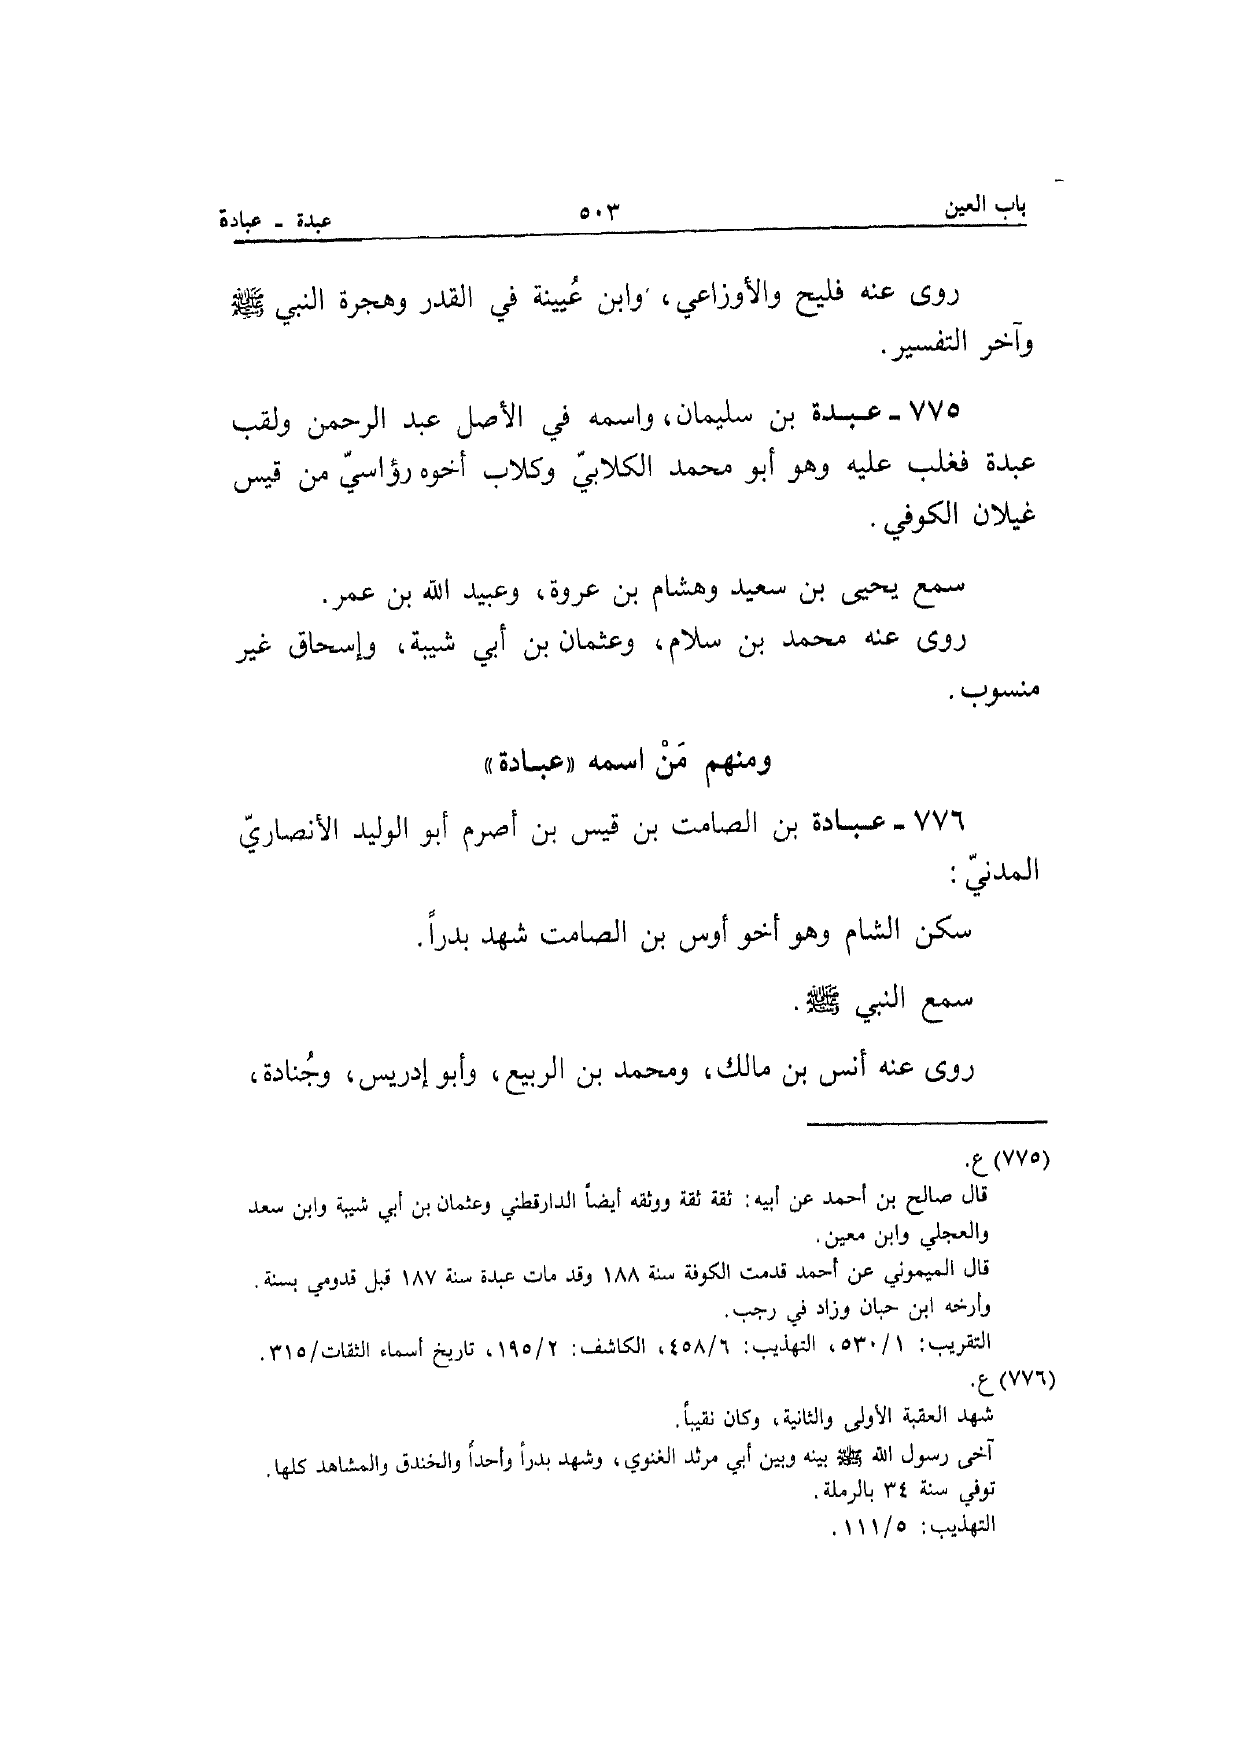 باب العين ٥٠٣ عبدة ـ عبادة
روى عنه فليح والأوزاعي، وابن عُيينة في القدر وهجرة النبي ﷺ
وآخر التفسير.
٧٧٥ ـ عبدة بن سليمان، واسمه في الأصل عبد الرحمن ولقب
عبدة فغلب عليه وهو أبو محمد الكلابيّ وكلاب أخوه رؤاسيّ من قيس
غيلان الكوفي.
سمع يحيى بن سعيد وهشام بن عروة، وعبيد الله بن عمر.
روى عنه محمد بن سلام، وعثمان بن أبي شيبة، وإسحاق غير
منسوب.
ومنهم مَنْ اسمه «عبادة»
٧٧٦ ـ عبادة بن الصامت بن قيس بن أصرم أبو الوليد الأنصاريّ
المدنيّ:
سكن الشام وهو أخو أوس بن الصامت شهد بدراً.
سمع النبي ﷺ.
روى عنه أنس بن مالك، ومحمد بن الربيع، وأبو إدريس، وجُنادة،
(٧٧٥) ع.
قال صالح بن أحمد عن أبيه: ثقة ثقة ووثقه أيضاً الدارقطني وعثمان بن أبي شيبة وابن سعد
والعجلي وابن معين.
قال الميموني عن أحمد قدمت الكوفة سنة ١٨٨ وقد مات عبدة سنة ١٨٧ قبل قدومي بسنة.
وأرخه ابن حبان وزاد في رجب.
التقريب: ٥٣٠/١، التهذيب: ٤٥٨/٦، الكاشف: ١٩٥/٢، تاريخ أسماء الثقات/٣١٥.
(٧٧٦) ع.
شهد العقبة الأولى والثانية، وكان نقيباً.
آخى رسول الله ﷺ بينه وبين أبي مرثد الغنوي، وشهد بدراً وأحداً والخندق والمشاهد كلها.
توفي سنة ٣٤ بالرملة.
التهذيب: ١١١/٥.